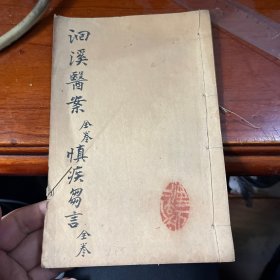 洄溪醫案全卷慎疾芻言全卷